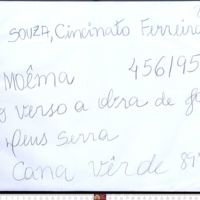 SOUZA, Cincinato Ferreira
MOÊMA 456/95
verso a obra de
Deus Serra
Cana vêrde